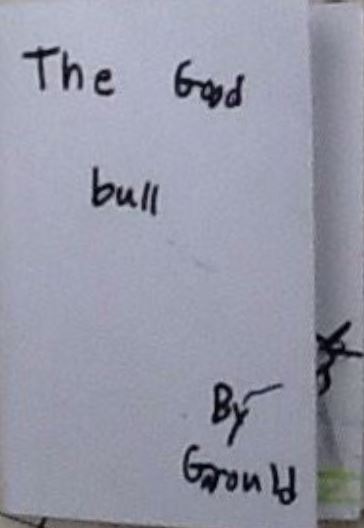 The Good
bull
By